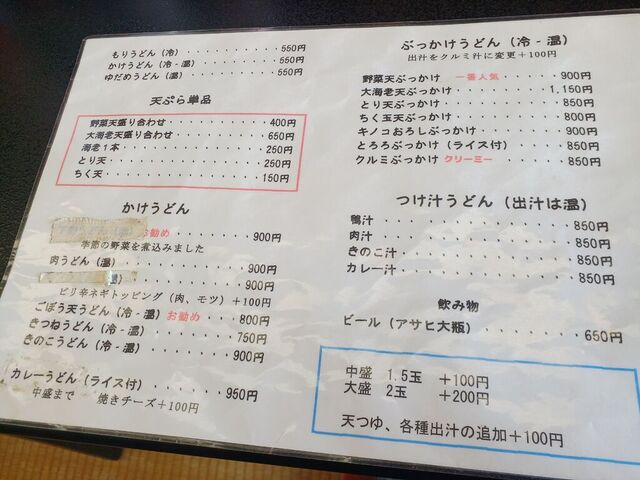 もりうどん（冷）・・・・・・・・・・550円
かけうどん（冷・温）・・・・・・・550円
ゆだめうどん（温）・・・・・・・・550円
天ぷら単品
野菜天盛り合わせ・・・・・・・・400円
大海老天盛り合わせ・・・・・・・650円
海老１本・・・・・・・・・・・・250円
とり天・・・・・・・・・・・・・250円
ちく天・・・・・・・・・・・・・150円
かけうどん
お勧め・・・・・・・900円
季節の野菜を煮込みました
肉うどん（温）・・・・・・・・・・900円
温）・・・・・・・・・・900円
ピリ辛ネギトッピング（肉、モツ）＋100円
ごぼう天うどん（冷・温）お勧め・・・800円
きつねうどん（冷・温）・・・・・・・750円
きのこうどん（冷・温）・・・・・・・900円
カレーうどん（ライス付）・・・・・・950円
中盛まで　焼きチーズ＋100円
ぶっかけうどん（冷・温）
出汁をクルミ汁に変更＋100円
野菜天ぶっかけ　一番人気・・・・・900円
大海老天ぶっかけ・・・・・・・・1,150円
とり天ぶっかけ・・・・・・・・・・850円
ちく玉天ぶっかけ・・・・・・・・・800円
キノコおろしぶっかけ・・・・・・・900円
とろろぶっかけ（ライス付）・・・・850円
クルミぶっかけ　クリーミー・・・・850円
つけ汁うどん（出汁は温）
鴨汁・・・・・・・・・・・・・・・850円
肉汁・・・・・・・・・・・・・・・850円
きのこ汁・・・・・・・・・・・・・850円
カレー汁・・・・・・・・・・・・・850円
飲み物
ビール（アサヒ大瓶）・・・・・・・650円
中盛　1.5玉　＋100円
大盛　2玉　＋200円
天つゆ、各種出汁の追加＋100円